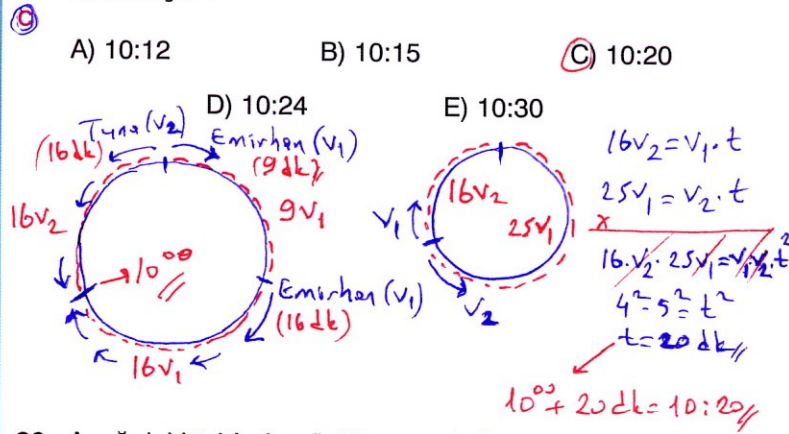 C
A) 10:12 B) 10:15 C) 10:20
D) 10:24 E) 10:30
Tuna (V₂) Emirhan (V₁)
(16dk) (9dk)
16V₂ 9V₁
10⁰⁰
Emirhan (V₁)
(16dk)
16V₁
16V₂
25V₁
V₁
V₂
16V₂=V₁.t
25V₁=V₂.t
x
16.V₂.25V₁=V₁.V₂.t²
4².5²=t²
t=20 dk
10⁰⁰+20dk=10:20